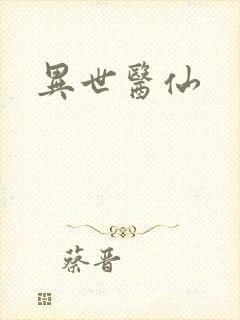 異世醫仙
蔡晋